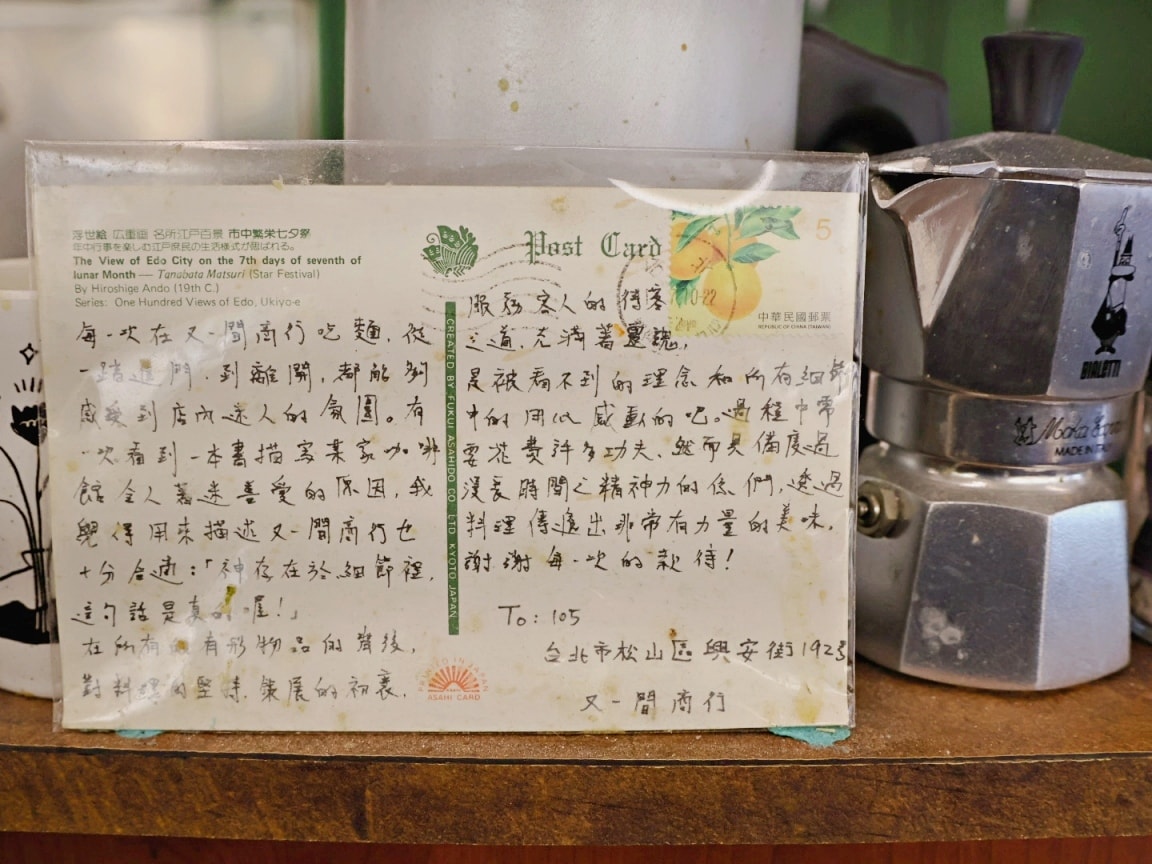 浮世絵 広重画 名所江戸百景 市中繁栄七夕祭
年中行事を楽しむ江戸庶民の生活様式が偲ばれる。
The View of Edo City on the 7th days of seventh of
lunar Month — Tanabata Matsuri (Star Festival)
By Hiroshige Ando (19th C.)
Series: One Hundred Views of Edo, Ukiyo-e
每一次在又一間商行吃麵,從
一踏進門,到離開,都能夠
感受到店內迷人的氛圍。有
一次看到一本書描寫某家咖啡
館令人著迷喜愛的原因,我
覺得用來描述又一間商行也
十分合適:「神存在於細節裡,
這句話是真的喔!」
在所有的有形物品的背後,
對料理的堅持、策展的初衷、
CREATED BY FUKUI ASAHIDO CO. LTD KYOTO JAPAN
PRINTED IN JAPAN
ASAHI CARD
Post Card
5
10-22
中華民國郵票
REPUBLIC OF CHINA (TAIWAN)
服務客人的待客
之道,充滿著靈魂,
是被看不到的理念和所有細節
中的用心感動的吧。過程中需
要花費許多功夫,然而具備度過
漫長時間之精神力的你們,透過
料理傳遞出非常有力量的美味,
謝謝每一次的款待!
To: 105
台北市松山區興安街192號
又一間商行
BIALETTI
Moka Express
MADE IN ITALY